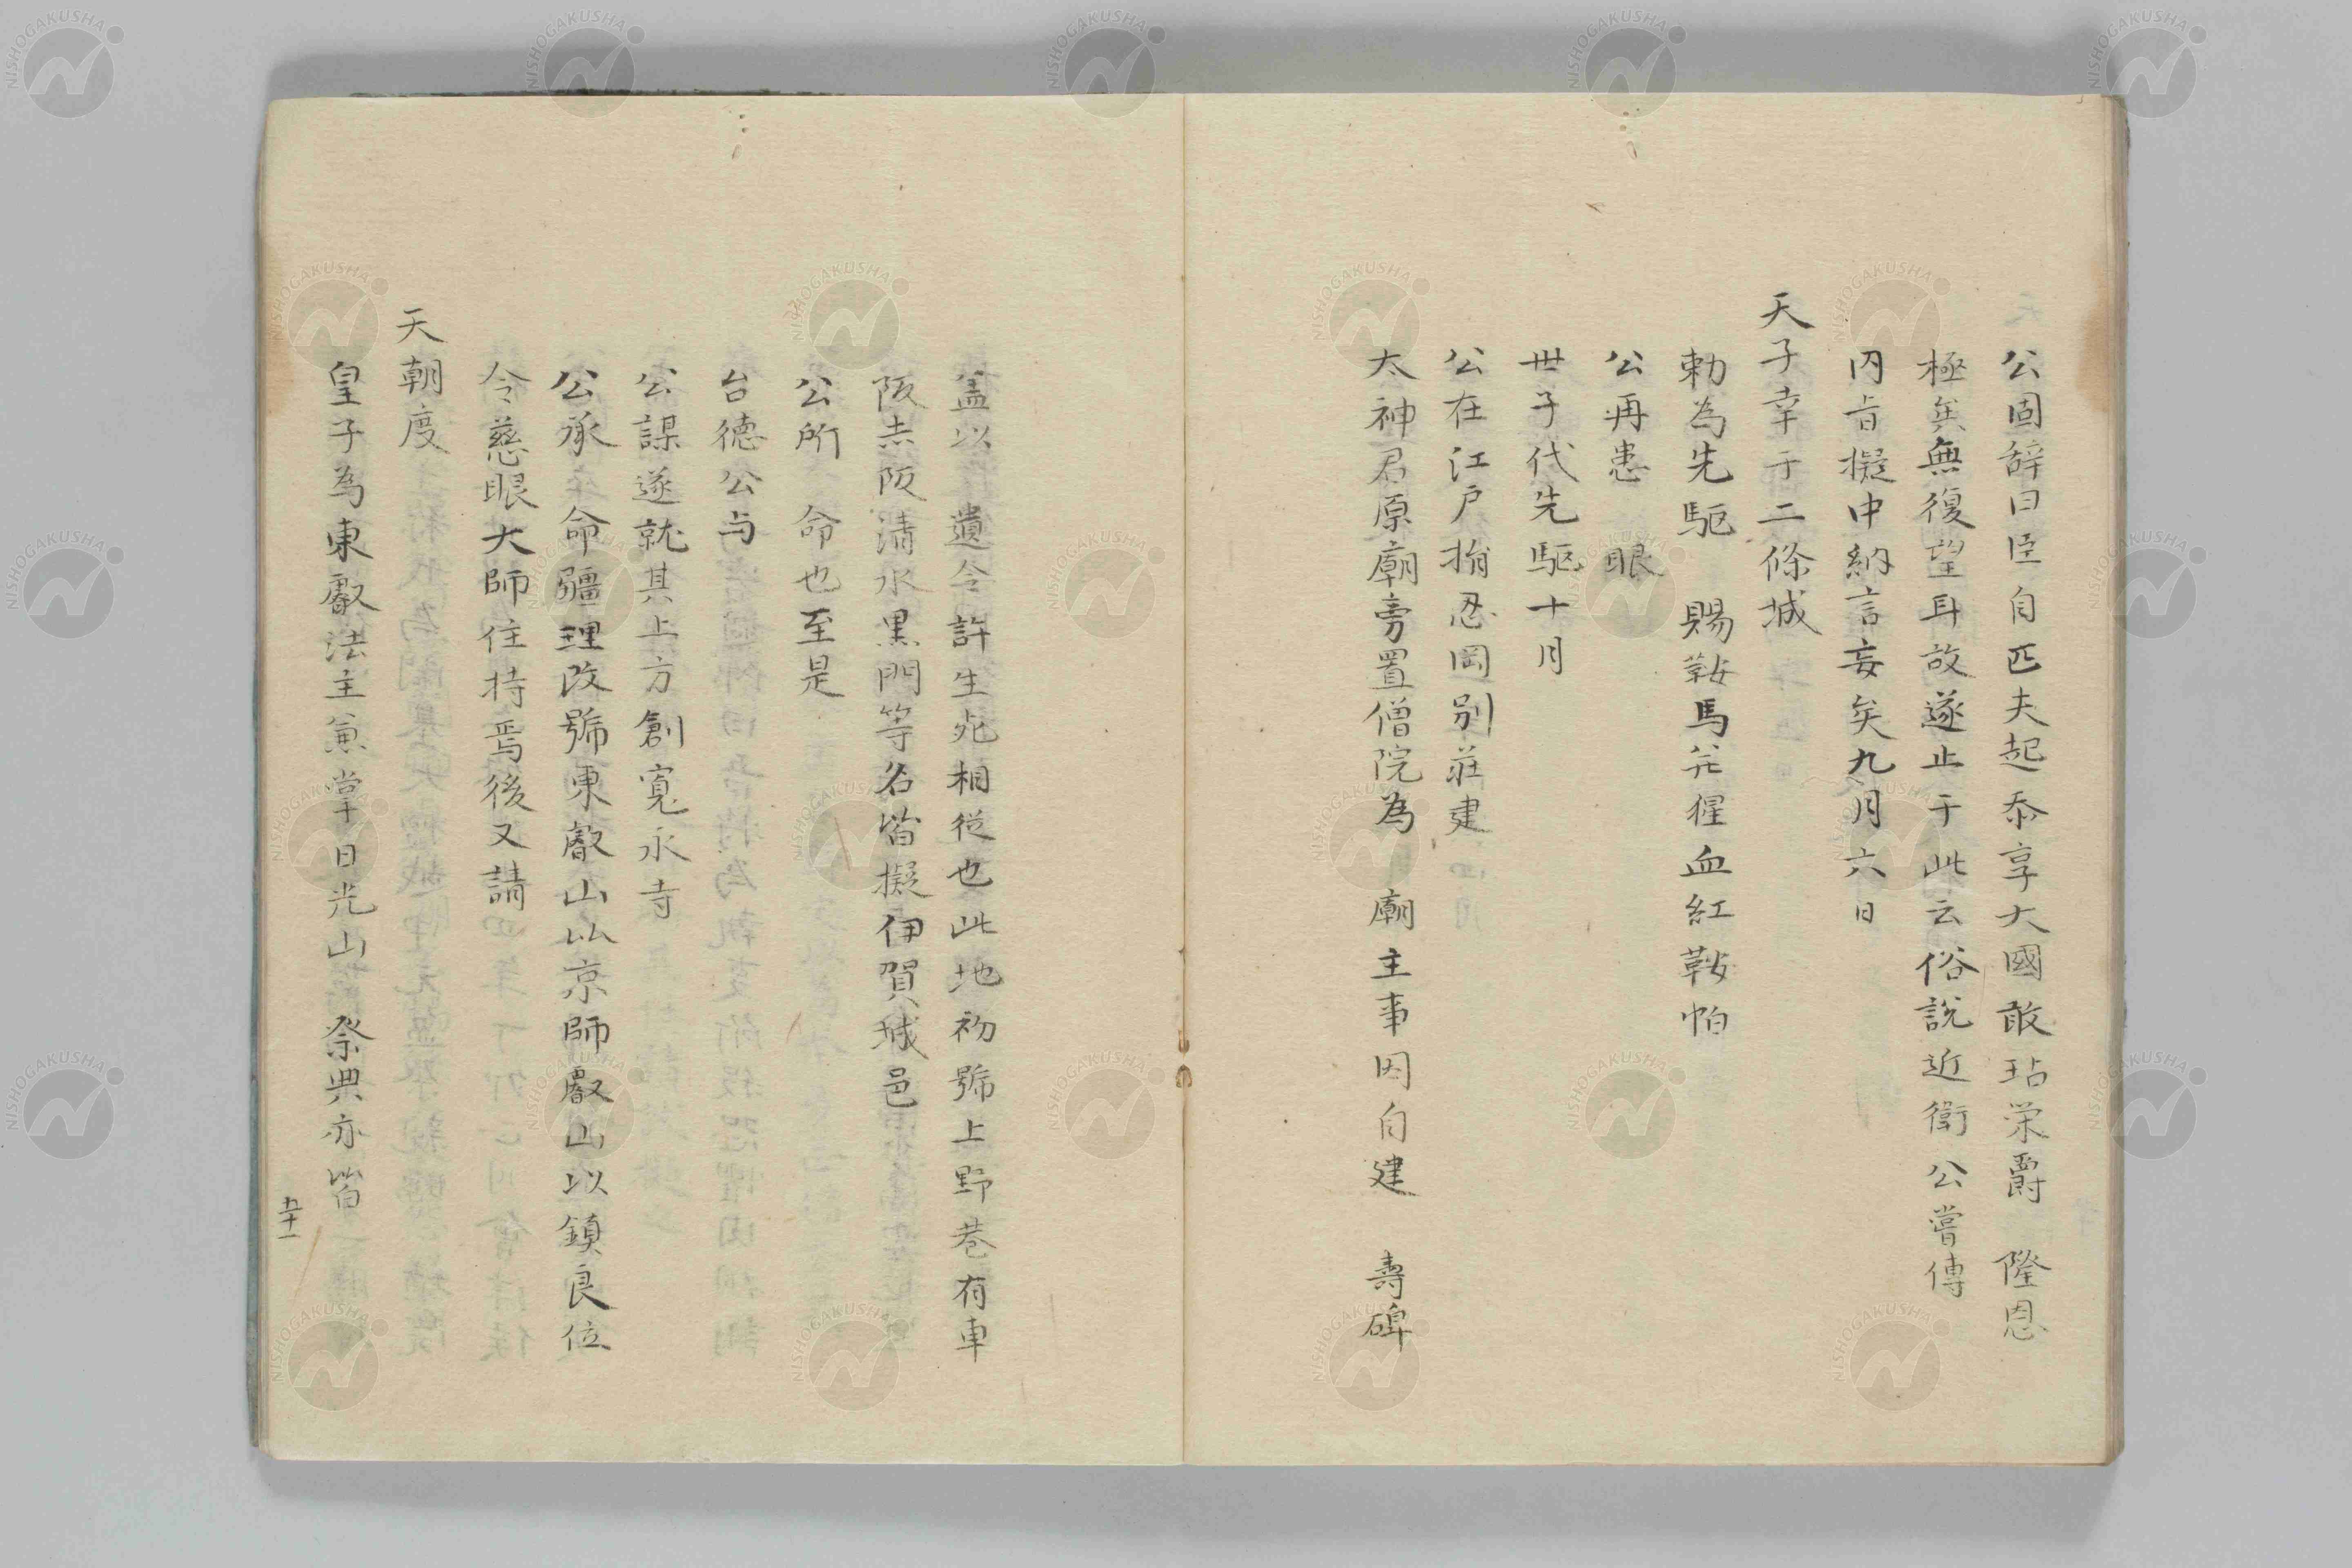 公固辞曰臣自匹夫起忝享大國敢玷栄爵　隆恩
極矣無復望耳故遂止于此云俗說近衛公嘗傳
内旨擬中納言妄矣九月六日
天子幸于二條城
勅為先駈　賜鞍馬并猩血紅鞍帕
公再患　眼
世子代先駈十月
公在江戸捐忍岡別莊建
太神君原廟旁置僧院為　廟主事因自建　壽碑
盖以　遺令許生死相從也此地初號上野巷有車
阪志阪清水黒門等名皆擬伊賀城邑
公所　命也至是
台德公与
公謀遂就其上方創寬永寺
公承　命疆理改號東叡山以京師叡山以鎮艮位
令慈眼大師住持焉後又請
天朝度
皇子為東叡法主兼掌日光山　祭典亦皆
五十一
NISHOGAKUSHA